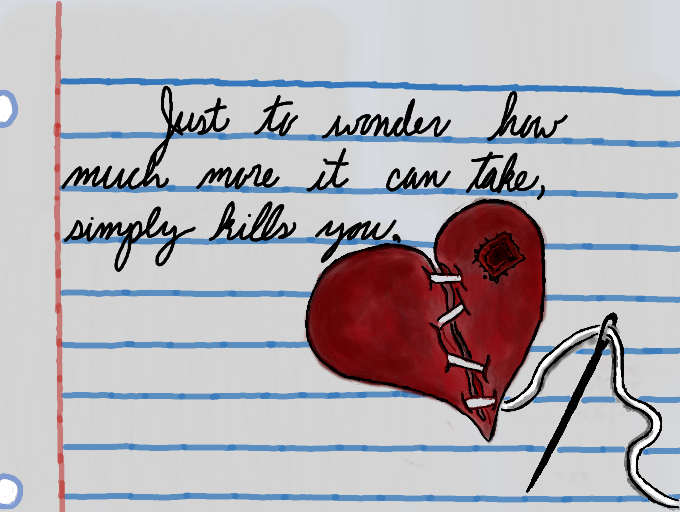 Just to wonder how
much more it can take,
simply kills you.